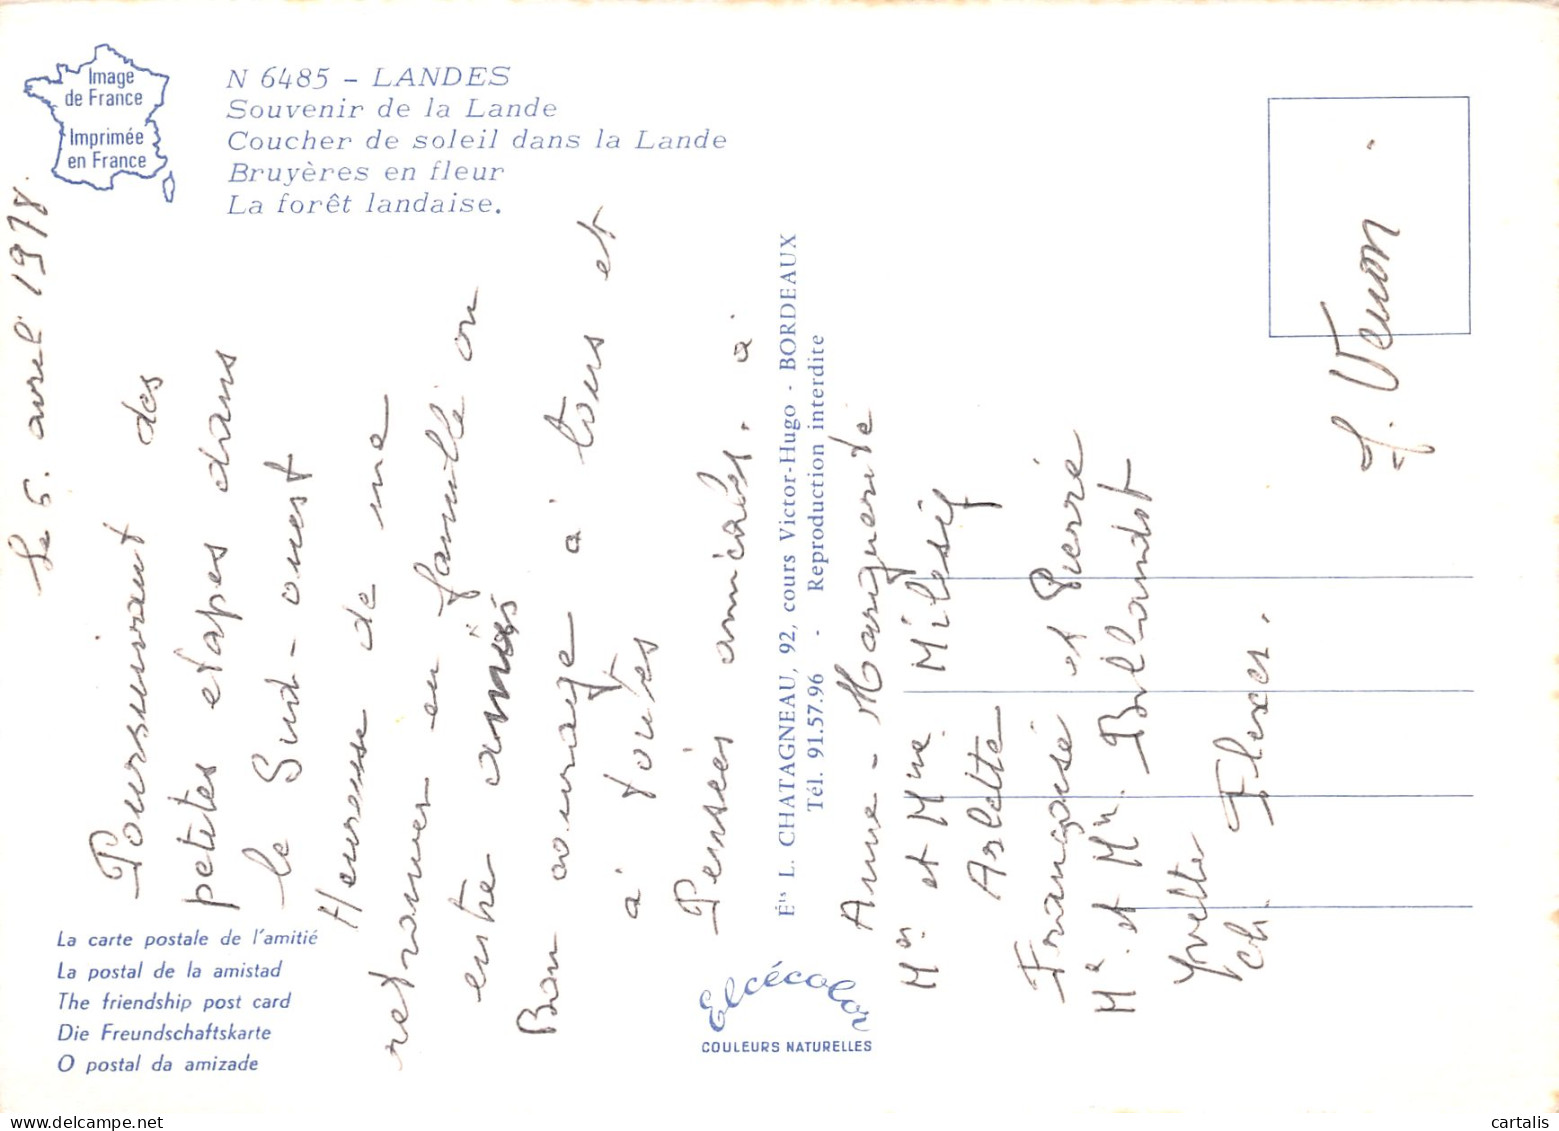 Image
de France
Imprimée
en France
N 6485 – LANDES
Souvenir de la Lande
Coucher de soleil dans la Lande
Bruyères en fleur
La forêt landaise.
Le 6. avril 1978.
Poursuivant des
petites etapes dans
le Sud-ouest
Heureuse de me
retrouver en famille ou
entre amiés
Bon courage à tous et
à toutes
Pensées amicales. à
Anne-Marguerite
Mr et Mme Milesif
Arlette
Françoise et Pierre
Mr et Mme
Yvette
Ch.
J. Vernon.
Éts L. CHATAGNEAU, 92, cours Victor-Hugo - BORDEAUX
Tél. 91.57.96 - Reproduction interdite
La carte postale de l'amitié
La postal de la amistad
The friendship post card
Die Freundschaftskarte
O postal da amizade
Elcécolor
COULEURS NATURELLES
cartalis